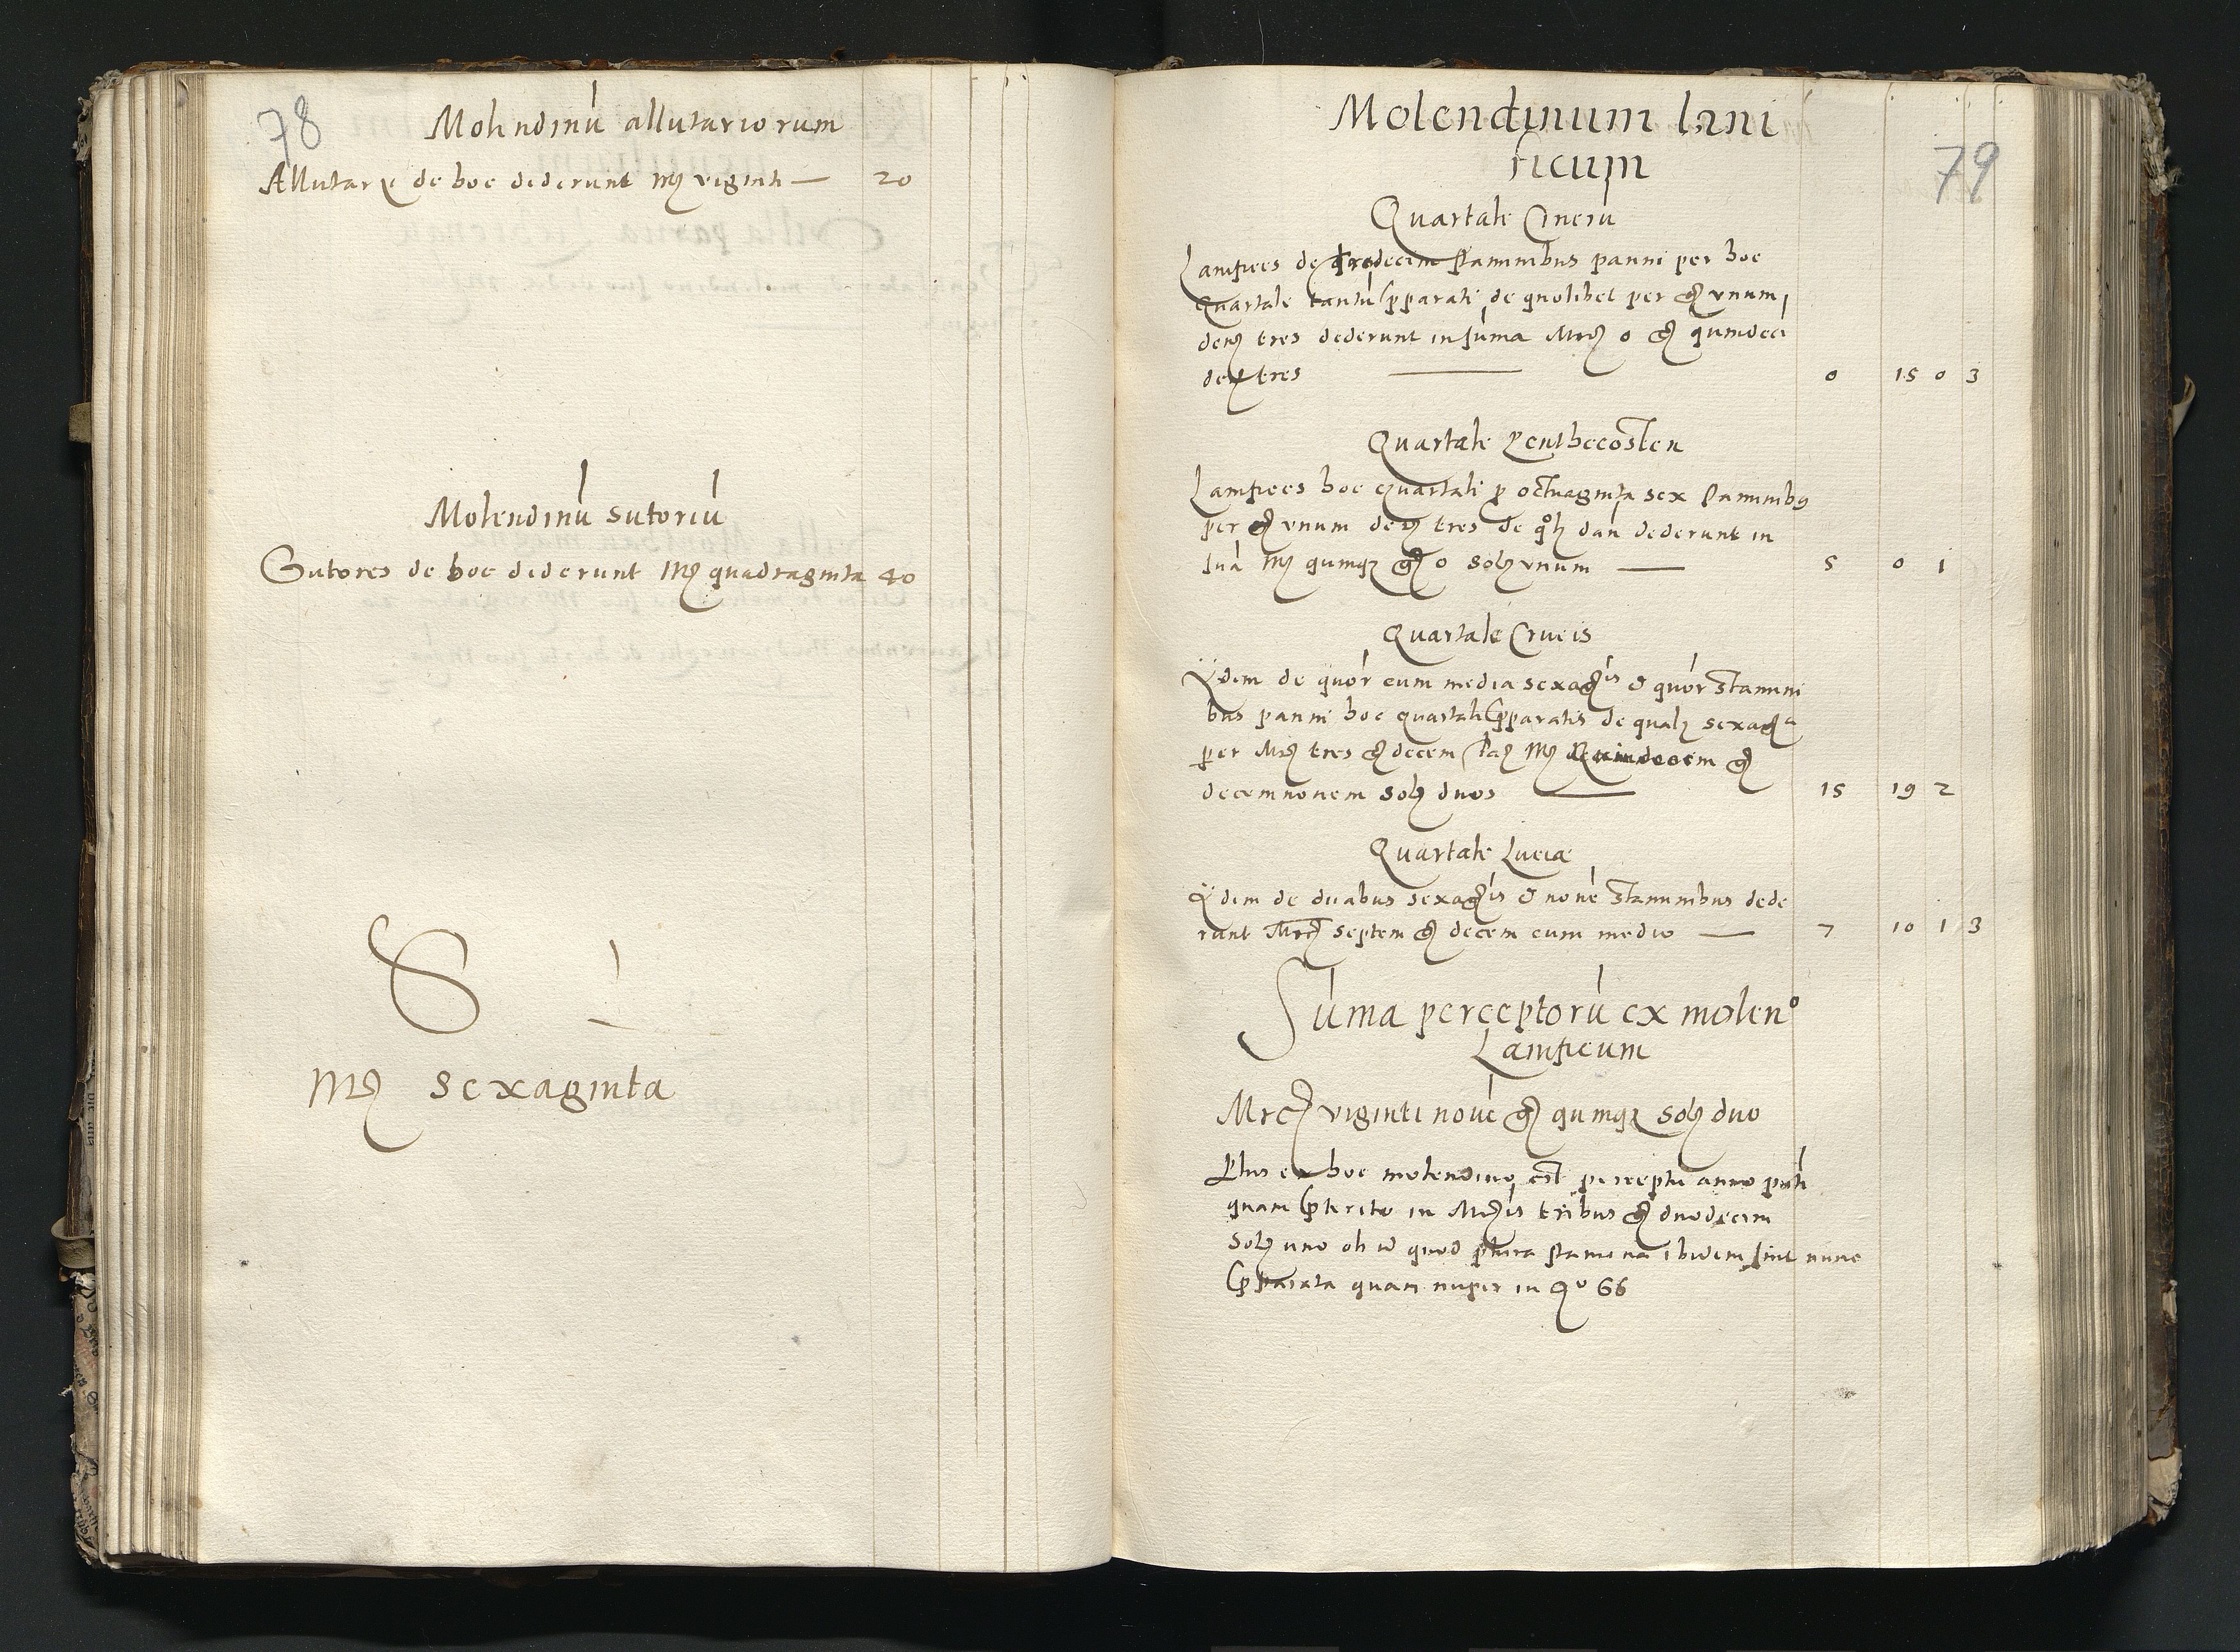 78
Molendinú allutariorum
Allutarii de hoc dederunt mꝫ viginti — 20
Molendinú sutoriú
Sutores de hoc dederunt mꝫ quadraginta 40
S
mꝫ sexaginta
79
Molendinum lani
ficum
Quartale Cinerú
Lanifices de tredecim staminibus panni per hoc
quartale tantú pparati de quolibet per gꝫ vnum
denꝫ tres dederunt in súma Mrcꝫ 0 gꝫ quindeci
deꝫ tres — 0 15 0 3
Quartale Penthecosten
Lanifices hoc quartali p octuaginta sex staminibꝫ
per gꝫ vnum deꝫ tres de qoꝫ dan dederunt in
súá mꝫ quinqꝫ gꝫ 0 solꝫ vnum — 5 0 1
Quartale Crucis
Ydem de quór cum media sexagis & quór stamini
bus panni hoc quartali pparatis de qualꝫ sexaga
per Mrꝫ tres gꝫ decem faꝫ mꝫ Quindecem gꝫ
decemnonem solꝫ duos — 15 19 2
Quartale Luciæ
Ydem de duabus sexagis & nové staminibus dede
runt Mrcꝫ septem gꝫ decem cum medio — 7 10 1 3
Súma perceptorú ex moleno
Lanificum
Mrcꝫ viginti nové gꝫ quinqꝫ solꝫ duo
Plus ex hoc molendino est perceptú anno pnti
quam pterito in Mrꝫis tribus gꝫ duodecim
solꝫ uno ob id quod plura stamina ibidem sint nunc
pparata quam nuper in Ao 66